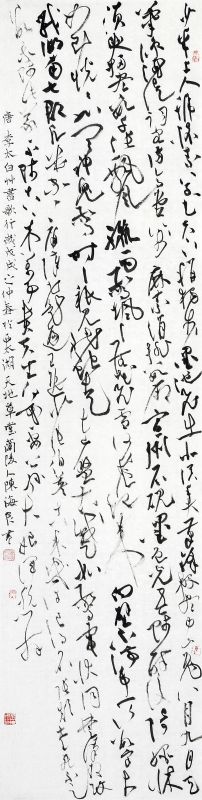 少年上人號懷素草書天下稱獨步墨池飛出北溟魚筆鋒殺盡中山兔八月九月天
氣涼酒徒詞客滿高堂箋麻素絹排數廂宣州石硯墨色光吾師醉後倚繩床
須臾掃盡數千張飄風驟雨驚颯颯落花飛雪何茫茫起來向壁不停手一行數字大
如斗怳怳如聞神鬼驚時時只見龍蛇走左盤右蹙如驚電狀同楚漢相攻
戰湖南七郡凡幾家家家屏障書題遍王逸少張伯英古來幾許浪得名張顛老死不足
數我師此義不師古古來萬事貴天生何必要公孫大娘渾脫舞
唐李太白草書歌行歲戊戌之仲春於東太湖天地草堂蘭陵人陳海良書